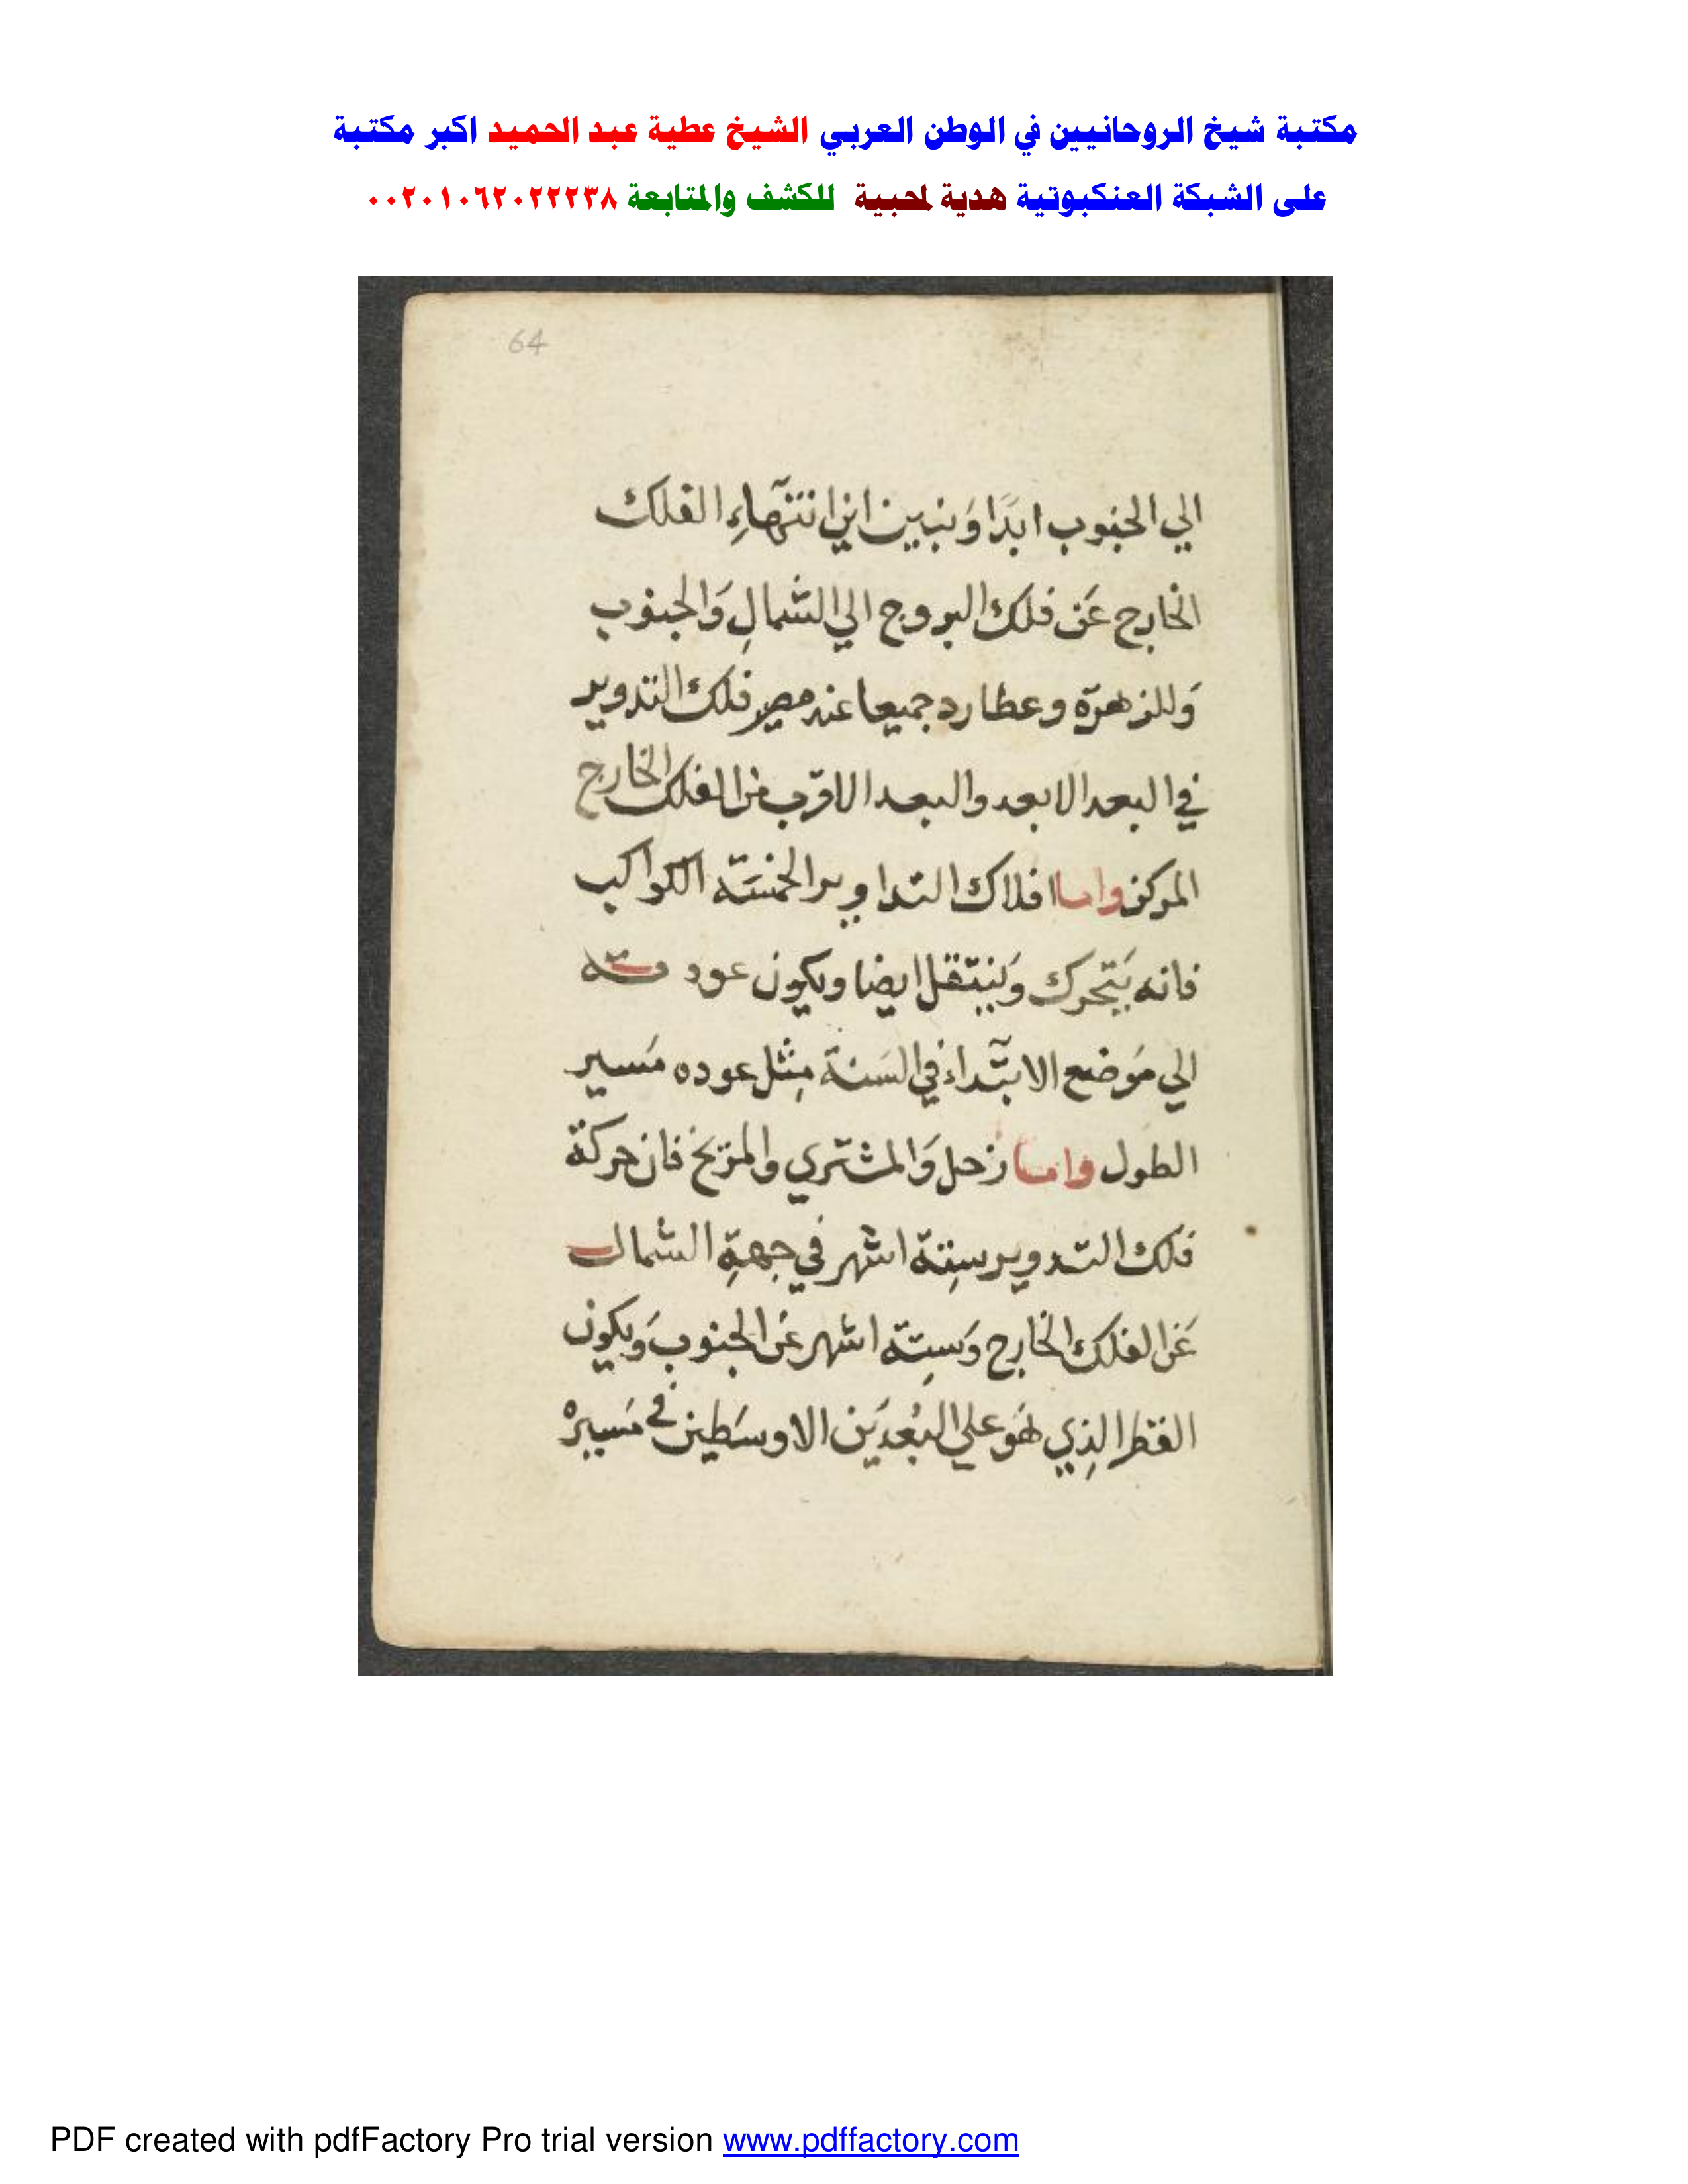 مكتبة شيخ الروحانيين في الوطن العربي الشيخ عطية عبد الحميد اكبر مكتبة
على الشبكة العنكبوتية هدية لمحبية للكشف والمتابعة ٠٠٢٠١٠٦٢٠٢٢٢٣٨
64
الي الجنوب ابدًا وَنبين اين انتهآءِ الفلك
الخارج عَن فلك البروج الي الشمالِ وَالجنوب
وَللزهرَة وعطارد جميعا عند مصير فلك التدوير
في البعد الابعد والبعد الاقرب من الفلك الخارج
المركز واما افلاك التداوير الخمسَة الكواكب
فانه يَتحرك وَينتقل ايضا ويكون عودته
الي مَوضع الابتدآء في السَنة مِثل عوده مَسير
الطول واما زحل وَالمشتري والمريخ فان حركة
فلك التدوير سِتة اشهر في جهةِ الشمال
عَن الفلك الخارج وَسِتة اشهر عَن الجنوب وَيكون
القطر الذِي هَو علي البُعدَين الاوسَطين في مَسيرهْ
PDF created with pdfFactory Pro trial version www.pdffactory.com